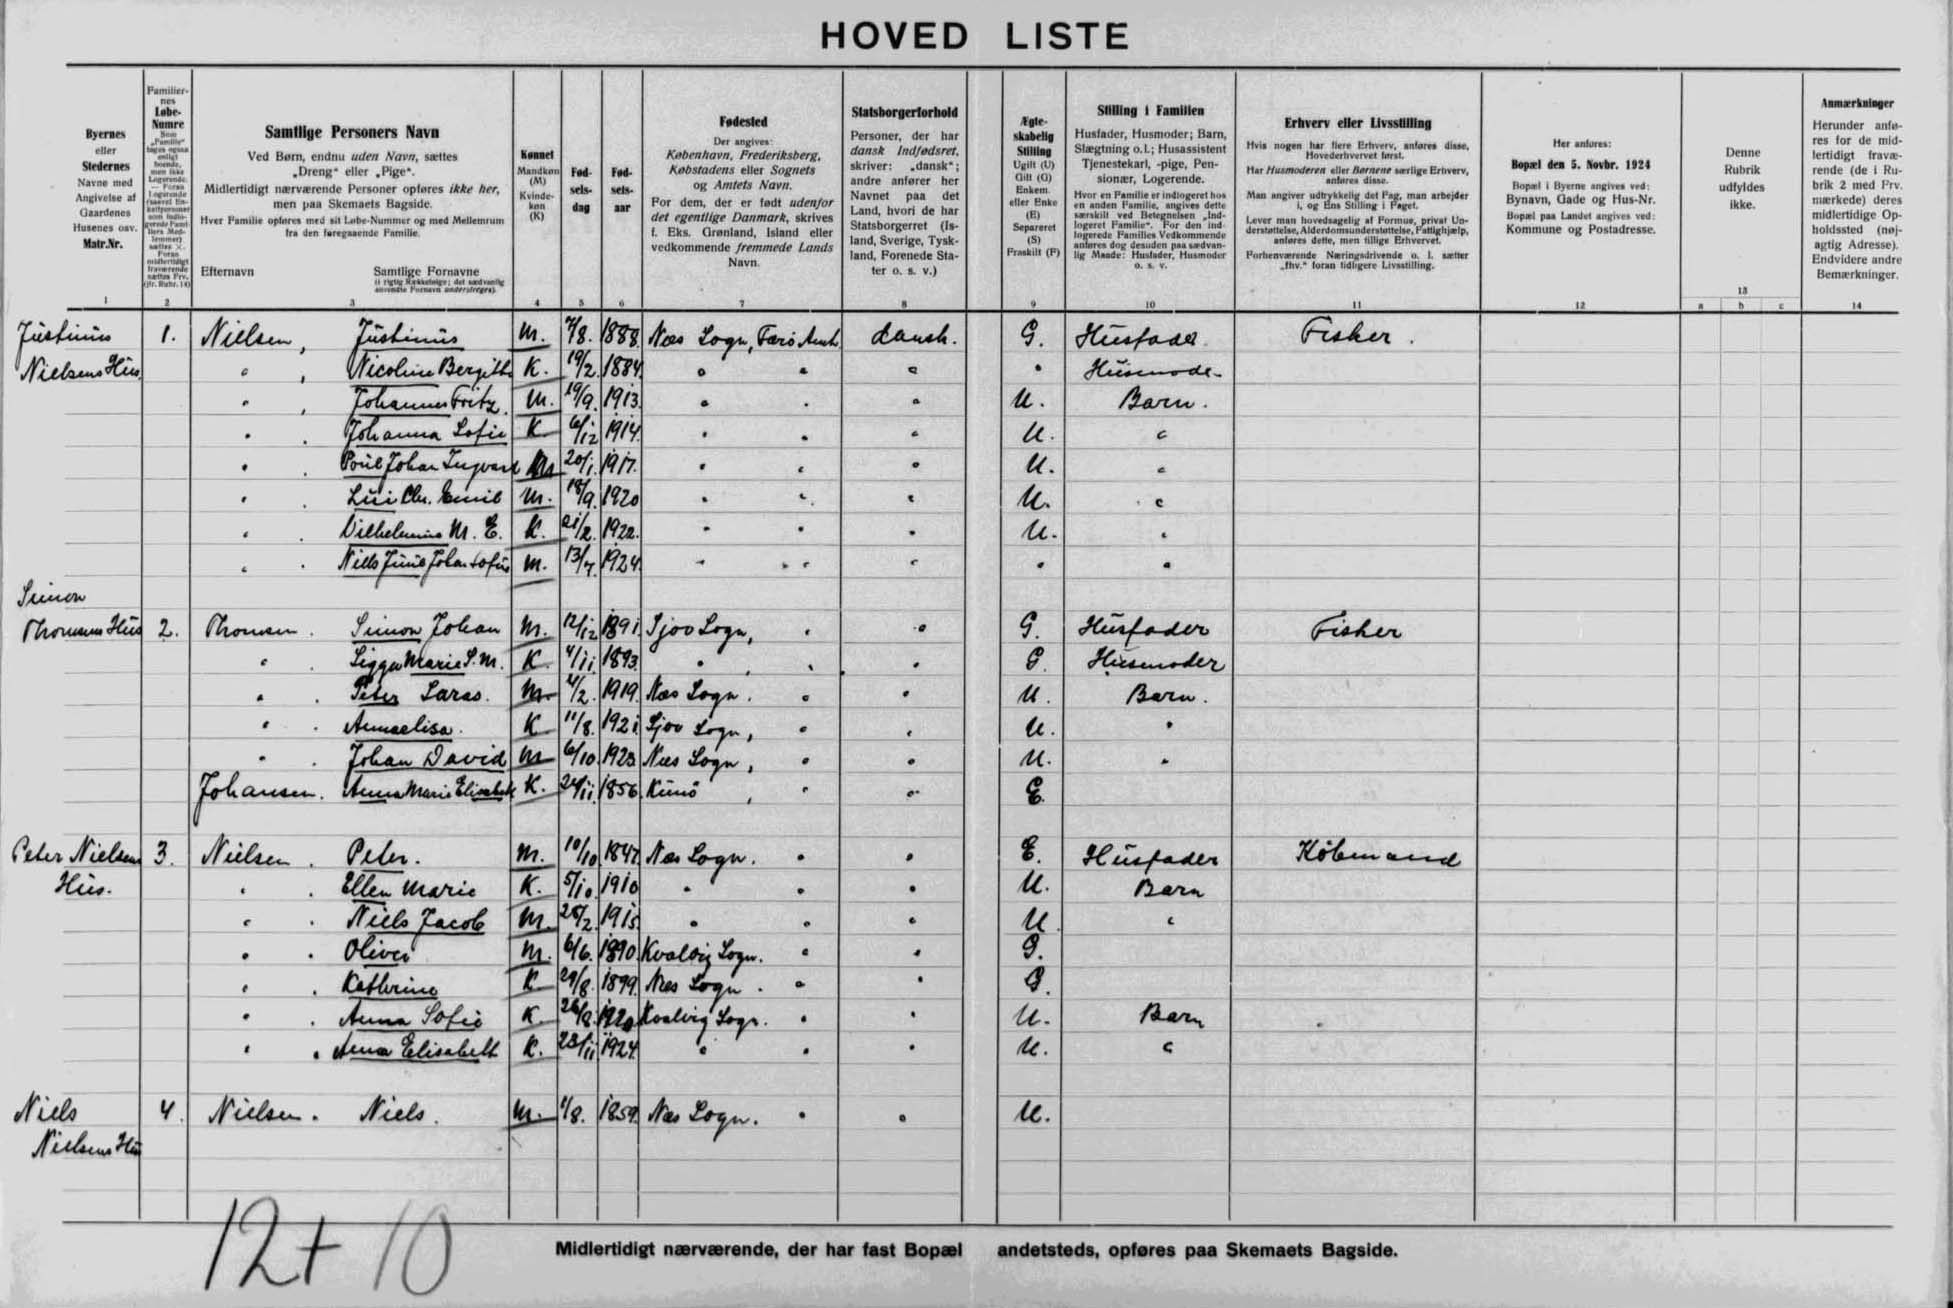 HOVED LISTE
Byernes
eller
Stedernes
Navne med
Angivelse af
Gaardenes
Husenes osv.
Matr.Nr.
1
Familier-
nes
Løbe-
Numre
2
Samtlige Personers Navn
Ved Børn, endnu uden Navn, sættes
„Dreng“ eller „Pige“.
Midlertidigt nærværende Personer opføres ikke her,
men paa Skemaets Bagside.
Hver Familie opføres med sit Løbe-Nummer og med Mellemrum
fra den foregaaende Familie.
Efternavn Samtlige Fornavne
(i rigtig Rækkefølge; det sædvanlig
anvendte Fornavn understreges).
3
Kønnet
Mandkøn
(M)
Kvinde-
køn
(K)
4
Fød-
sels-
dag
5
Fød-
sels-
aar
6
Fødested
Der angives:
København, Frederiksberg,
Købstadens eller Sognets
og Amtets Navn.
For dem, der er født udenfor
det egentlige Danmark, skrives
f. Eks. Grønland, Island eller
vedkommende fremmede Lands
Navn.
7
Statsborgerforhold
Personer, der har
dansk Indfødsret,
skriver: „dansk“;
andre anfører her
Navnet paa det
Land, hvori de har
Statsborgerret (Is-
land, Sverige, Tysk-
land, Forenede Sta-
ter o. s. v.)
8
Ægte-
skabelig
Stilling
Ugift (U)
Gift (G)
Enkem.
eller Enke
(E)
Separeret
(S)
Fraskilt (F)
9
Stilling i Familien
Husfader, Husmoder; Barn,
Slægtning o.l.; Husassistent
Tjenestekarl, -pige, Pen-
sionær, Logerende.
Hvor en Familie er indlogeret hos
en anden Familie, angives dette
særskilt ved Betegnelsen „Ind-
logeret Familie“. For den ind-
logerede Families Vedkommende
anføres dog desuden paa sædvan-
lig Maade: Husfader, Husmoder
o. s. v.
10
Erhverv eller Livsstilling
Hvis nogen har flere Erhverv, anføres disse,
Hovederhvervet først.
Har Husmoderen eller Børnene særlige Erhverv,
anføres disse.
Man angiver udtrykkelig det Fag, man arbejder
i, og Ens Stilling i Faget.
Lever man hovedsagelig af Formue, privat Un-
derstøttelse, Alderdomsunderstøttelse, Fattighjælp,
anføres dette, men tillige Erhvervet.
Forhenværende Næringsdrivende o. l. sætter
„fhv.“ foran tidligere Livsstilling.
11
Her anføres:
Bopæl den 5. Novbr. 1924
Bopæl i Byerne angives ved:
Bynavn, Gade og Hus-Nr.
Bopæl paa Landet angives ved:
Kommune og Postadresse.
12
Denne
Rubrik
udfyldes
ikke.
13
a b c
Anmærkninger
Herunder anfø-
res for de mid-
lertidigt fravæ-
rende (de i Ru-
brik 2 med Frv.
mærkede) deres
midlertidige Op-
holdssted (nøj-
agtig Adresse).
Endvidere andre
Bemærkninger.
14
Justinus 1. Nielsen, Justinus M. 7/8. 1888. Næs Sogn, Færö Amt. dansk. G. Husfader. Fisker.
Nielsens Hus " , Nicoline Bergitte K. 19/2. 1884. " " " " Husmoder
" , Johannes Fritz. M. 19/9. 1913. " " " U. Barn.
" . Johanna Sofie K 6/12 1914. " " " U. "
" . Poul Johan Ingvard M 20/1. 1917. " " " U. "
" . Lui Chr. Emil M. 18/9. 1920 " " " U. "
" . Vilhelmine M. E. K. 21/2. 1922. " " " U. "
" . Niels Juul Johan Sofus M. 13/7. 1924. " " " " "
Simon
Thomsens Hus 2. Thomsen. Simon Johan M. 12/12 1891. Sjov Sogn, " " G. Husfader Fisker
" . Marie S. M. K. 4/11. 1893. " " " G. Husmoder
" . Peter M 4/2. 1919. Næs Sogn. " " U. Barn.
" . Annaelisa. K 11/8. 1921 Sjov Sogn, " " U. "
" . Johan David M 6/10. 1923 Næs Sogn, " " U. "
Johansen. Anna Marie Elisabeth K. 24/11. 1856. Kunö , " " E.
Peter Nielsens 3. Nielsen. Peter. M. 10/10 1847. Næs Sogn. " " E. Husfader Købmand
Hus. " . Ellen Marie K. 5/10. 1910 " " " U. Barn
" . Niels Jacob M. 25/2. 1915. " " " U "
" . Oliver M. 6/6. 1890. Kvalvig Sogn. " " G.
" . Kathrine K 29/8. 1899. Næs Sogn. " " G.
" . Anna Sofie K. 26/8. 1920 Kvalvig Sogn. " " U. Barn
" . Anna Elisabeth K. 23/11 1924. " " " U. "
Niels 4. Nielsen. Niels. M. 1/8. 1859. Næs Sogn. " " U.
Nielsens Hus
12+10
Midlertidigt nærværende, der har fast Bopæl andetsteds, opføres paa Skemaets Bagside.